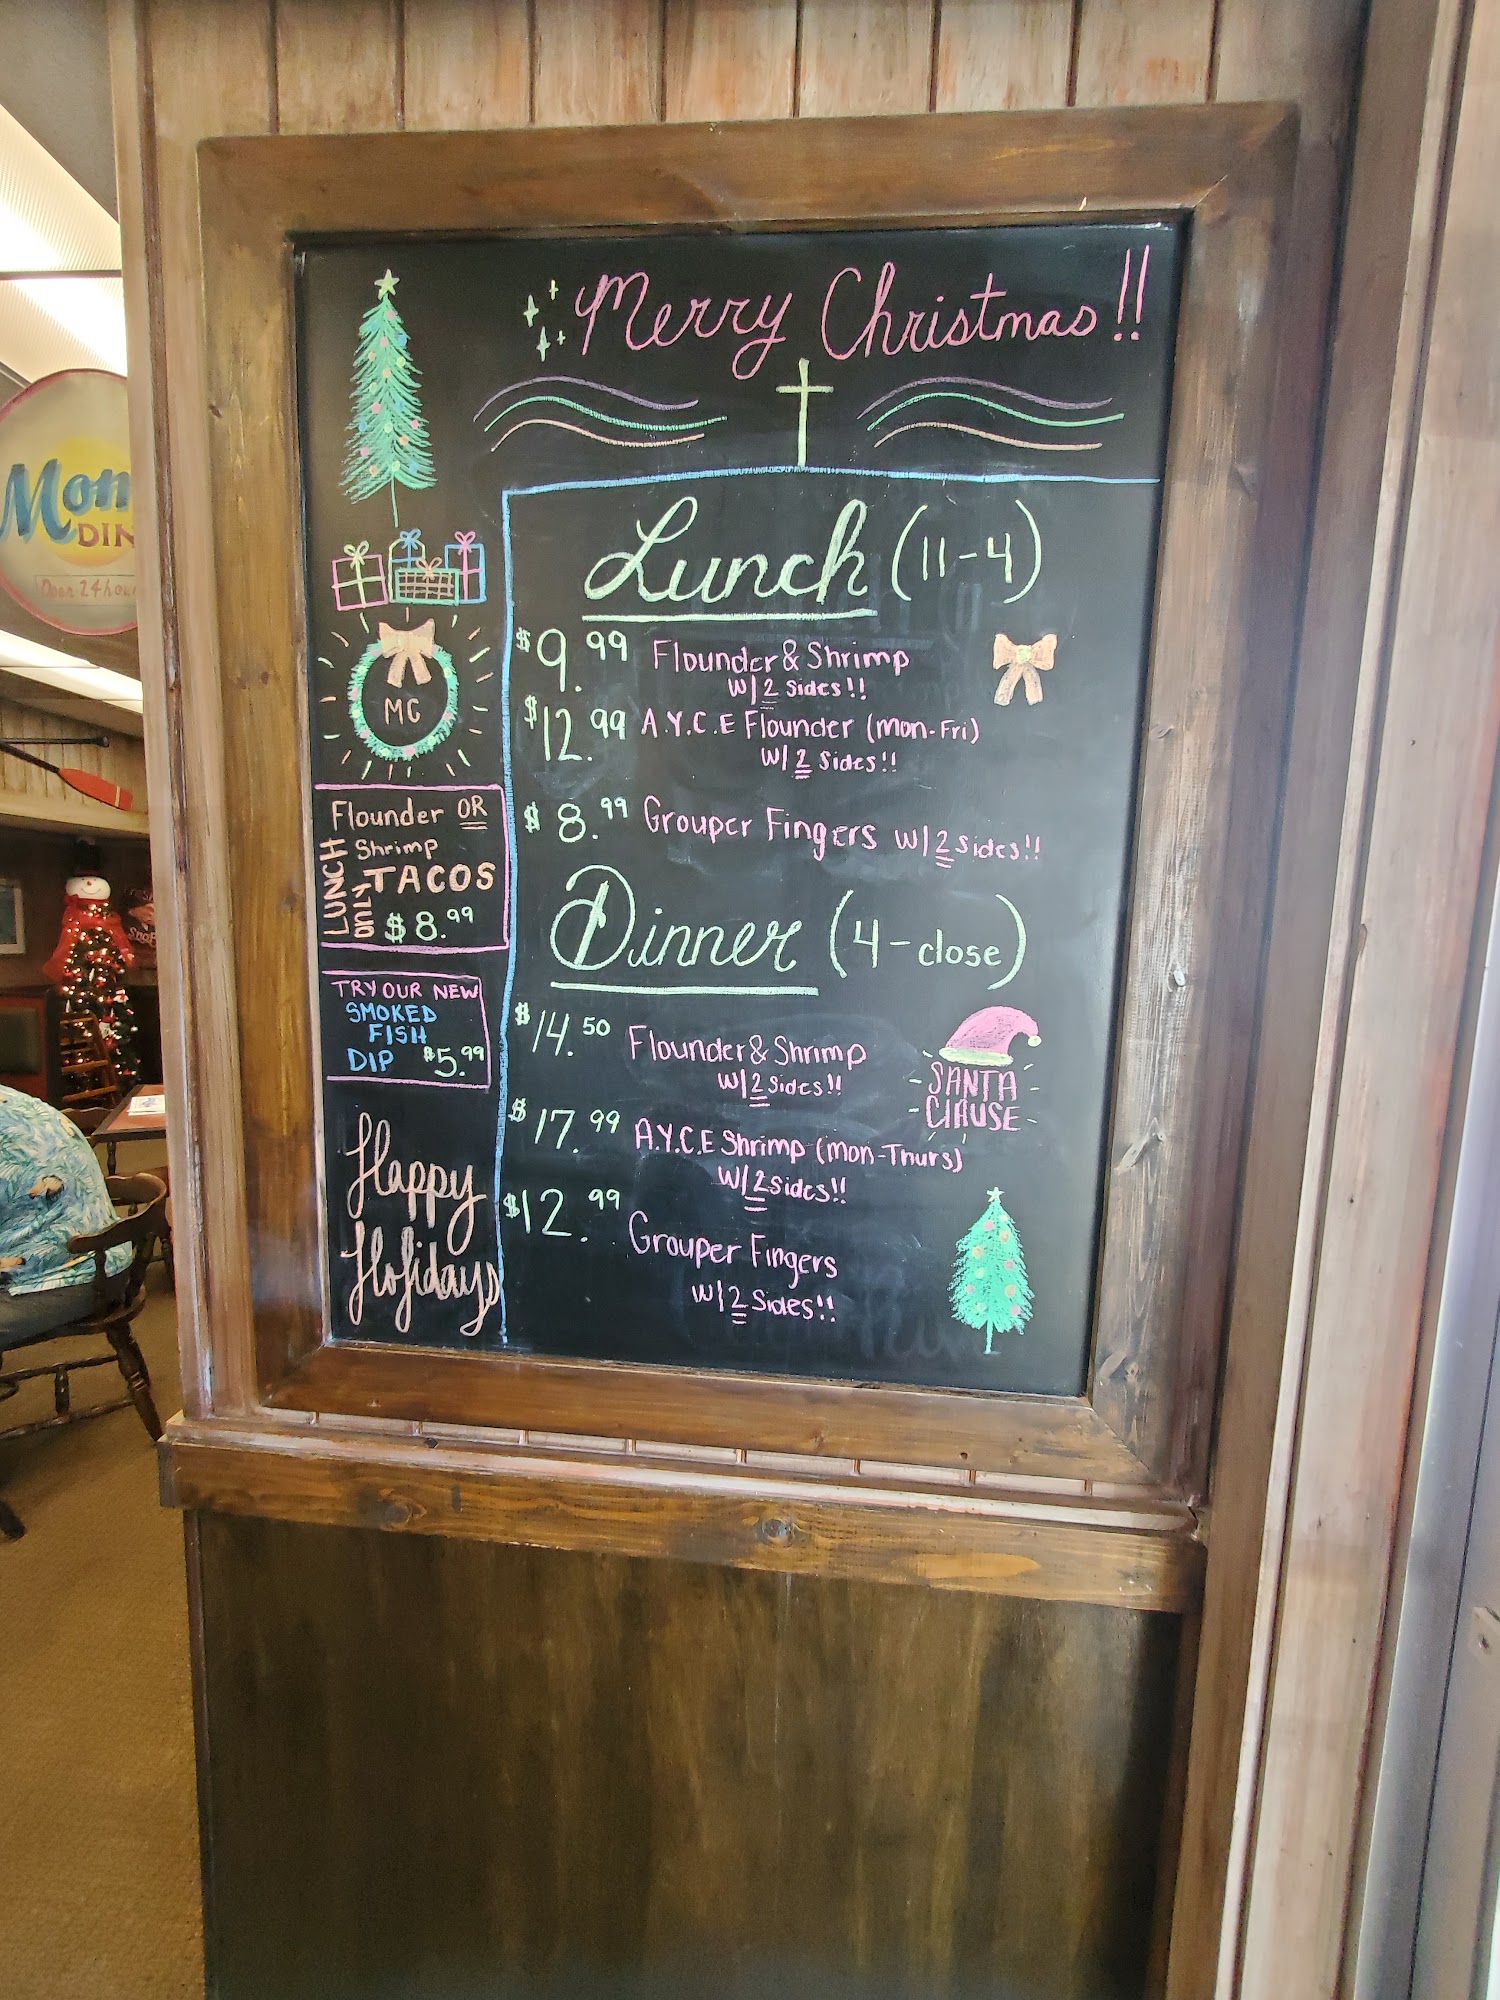 Merry Christmas!!
Lunch (11-4)
$9.99 Flounder & Shrimp
W/2 Sides!!
$12.99 A.Y.C.E Flounder (Mon-Fri)
W/2 Sides!!
$8.99 Grouper Fingers W/2 Sides!!
Dinner (4-close)
$14.50 Flounder & Shrimp
W/2 Sides!!
$17.99 A.Y.C.E Shrimp (Mon-Thurs)
W/2 Sides!!
$12.99 Grouper Fingers
W/2 Sides!!
SANTA
ClAUSE
MC
Flounder OR
Shrimp
TACOS
$8.99
LUNCH
ONLY
TRY OUR NEW
SMOKED
FISH
DIP $5.99
Happy
Holidays
Mom
DIN
Open 24 hou